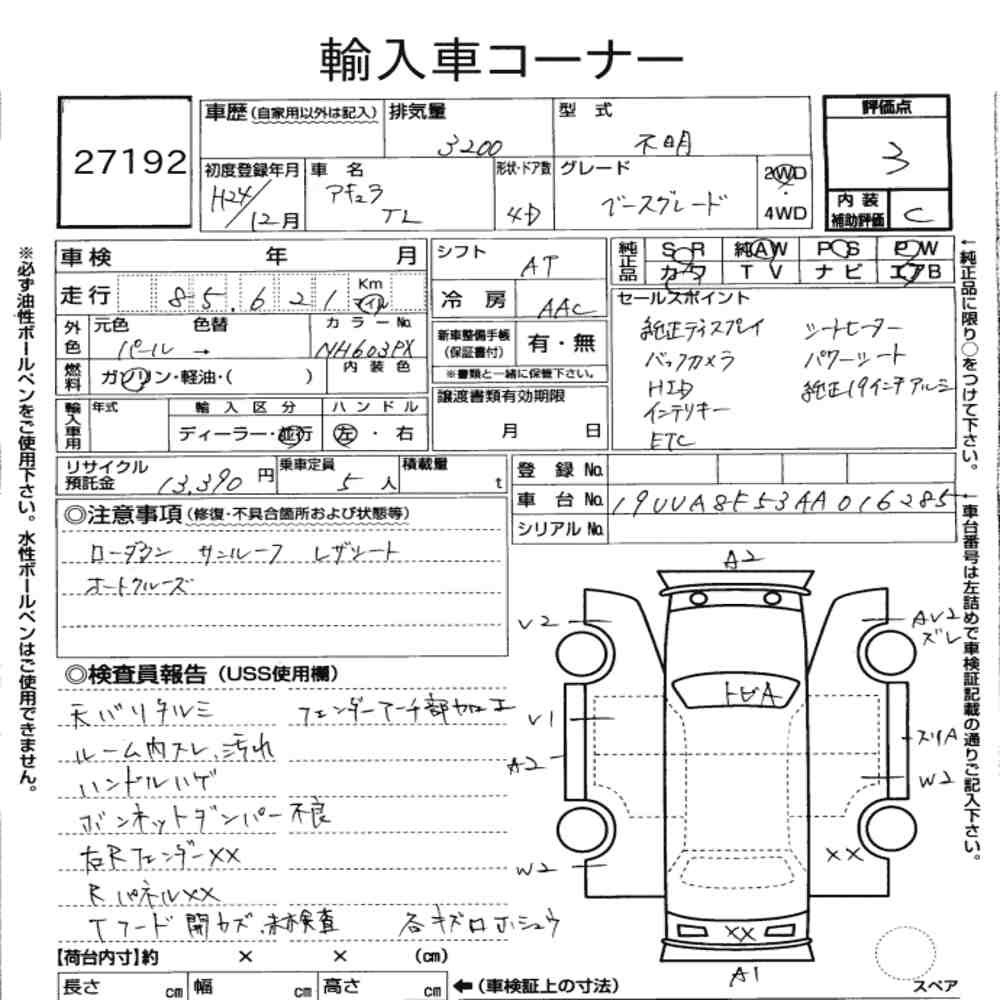 輸入車コーナー
27192
車歴(自家用以外は記入)
排気量
3200
型式
不明
評価点
3
初度登録年月
H24/12月
車名
アキュラ
TL
形状・ドア数
4D
グレード
ベースグレード
2WD
4WD
内装
補助評価
C
車検 年 月
シフト
AT
純正品
S R 純AW P S P W
カワ TV ナビ エアB
走行
85,621
Km
マイル
冷房
AAC
セールスポイント
純正ディスプレイ シートヒーター
バックカメラ パワーシート
HID 純正19インチアルミ
インテリキー
ETC
外色
元色 色替
パール →
カラーNo.
NH603PX
新車整備手帳
(保証書付)
有・無
※書類と一緒に保管下さい。
燃料
ガソリン・軽油・( )
内装色
譲渡書類有効期限
月 日
輸入車用
年式
輸入区分
ディーラー・並行
ハンドル
左・右
リサイクル
預託金
13,390円
乗車定員
5人
積載量
t
登録No.
車台No.
19UUA8F53AA016285
シリアルNo.
◎注意事項(修復・不具合箇所および状態等)
ローダウン サンルーフ レザシート
オートクルーズ
◎検査員報告(USS使用欄)
天バリタルミ フェンダーアーチ部加工
ルーム内スレ、汚れ
ハンドルハゲ
ボンネットダンパー不良
右Rフェンダー××
Rパネル××
Tフード開カズ、未検査 各キズロホシュウ
A2
V2
AV2
ズレ
トビA
V1
スリA
A2
W2
W2
××
××
A1
スペア
【荷台内寸】約 × × (cm)
長さ cm 幅 cm 高さ cm
←(車検証上の寸法)
※必ず油性ボールペンをご使用下さい。水性ボールペンはご使用できません。
←純正品に限り○をつけて下さい。
←車台番号は左詰めで車検証記載の通りご記入下さい。